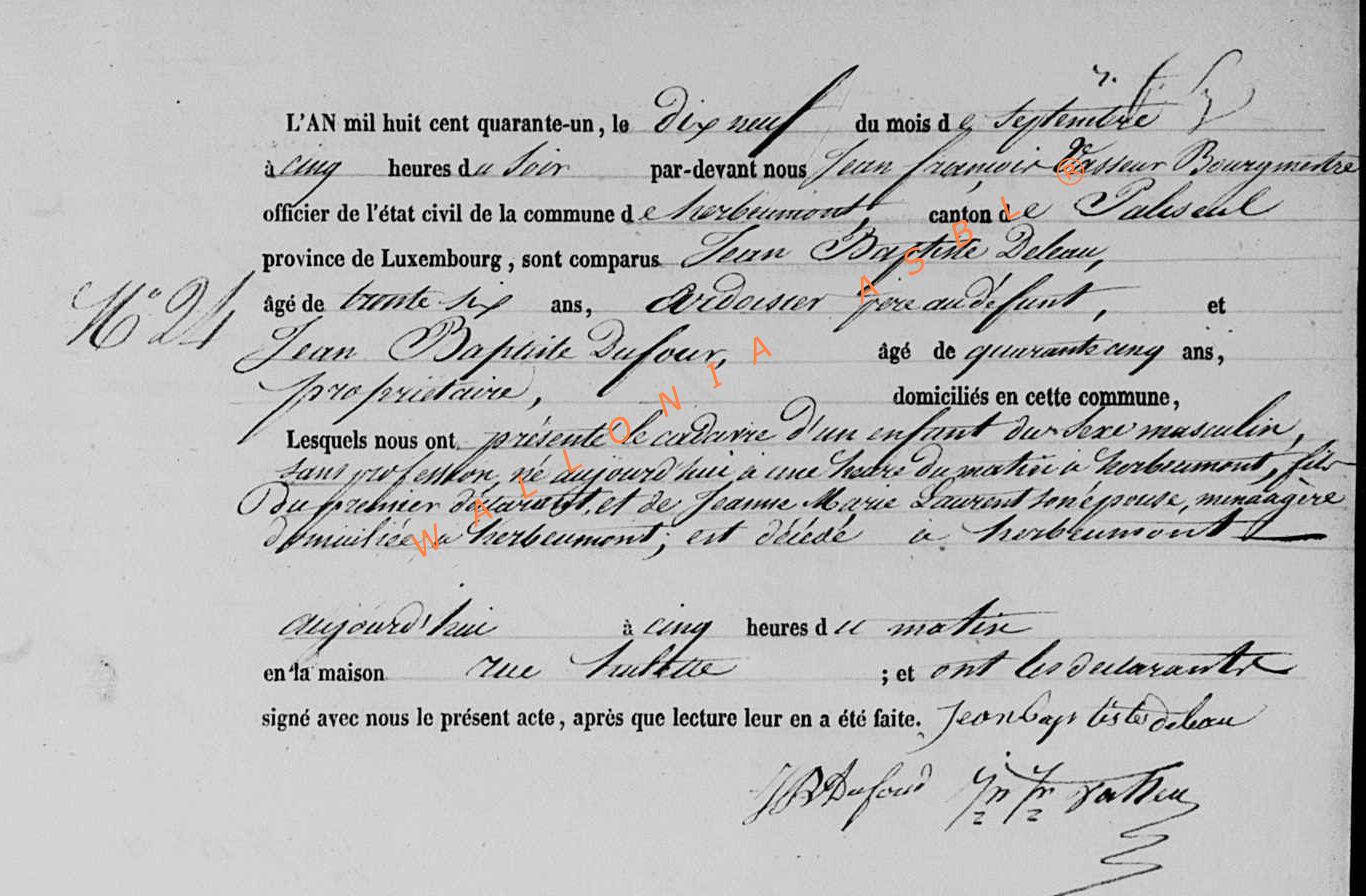 L'AN mil huit cent quarante-un, le dix neuf du mois de Septembre
à cinq heures du Soir par-devant nous Jean françois Vasseur Bourgmestre
officier de l'état civil de la commune de herbeumont, canton de Paliseul
province de Luxembourg, sont comparus Jean Baptiste Deleau,
N° 24
âgé de trente six ans, ardoisier père au défunt, et
Jean Baptiste Dufour, âgé de quarante cinq ans,
propriétaire, domiciliés en cette commune,
Lesquels nous ont présenté le cadavre d'un enfant du Sexe masculin,
sans profession, né aujourd'hui à une heure du matin à herbeumont, fils
Du premier déclarant, et de Jeanne Marie Laurent son épouse, menaagère
domiciliée a herbeumont; est décédé a herbeumont
aujourd'hui à cinq heures du matin
en la maison rue ; et ont les declarants
signé avec nous le présent acte, après que lecture leur en a été faite. Jean baptiste deleau
JB Dufour
WALLONIA ASBL ®